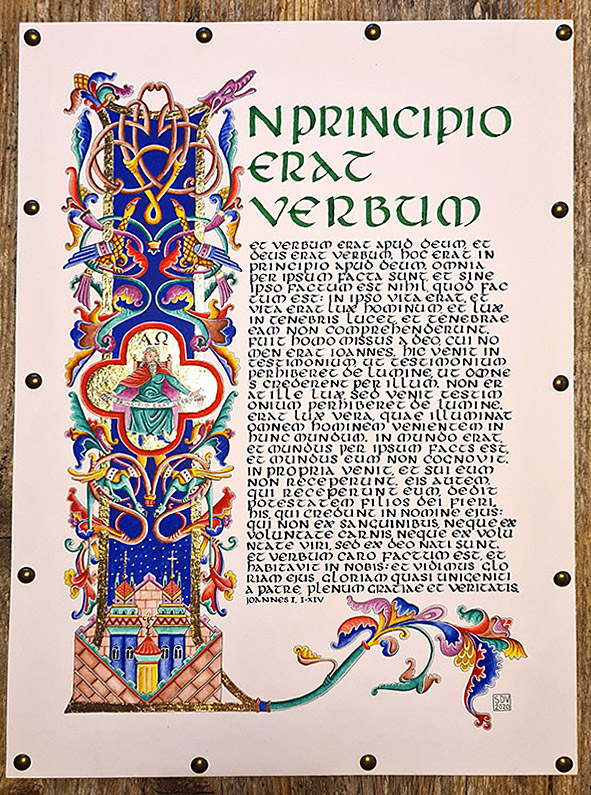 IN PRINCIPIO
ERAT
VERBUM
ET VERBUM ERAT APUD DEUM, ET
DEUS ERAT VERBUM. HOC ERAT IN
PRINCIPIO APUD DEUM. OMNIA
PER IPSUM FACTA SUNT: ET SINE
IPSO FACTUM EST NIHIL, QUOD FAC
TUM EST: IN IPSO VITA ERAT, ET
VITA ERAT LUX HOMINUM: ET LUX
IN TENEBRIS LUCET, ET TENEBRAE
EAM NON COMPREHENDERUNT.
FUIT HOMO MISSUS A DEO, CUI NO
MEN ERAT IOANNES. HIC VENIT IN
TESTIMONIUM UT TESTIMONIUM
PERHIBERET DE LUMINE, UT OMNE
S CREDERENT PER ILLUM. NON ER
AT ILLE LUX, SED VENIT TESTIM
ONIUM PERHIBERET DE LUMINE.
ERAT LUX VERA, QUAE ILLUMINAT
OMNEM HOMINEM VENIENTEM IN
HUNC MUNDUM. IN MUNDO ERAT,
ET MUNDUS PER IPSUM FACTS EST,
ET MUNDUS EUM NON COGNOVIT.
IN PROPRIA VENIT, ET SUI EUM
NON RECEPERUNT. EIS AUTEM,
QUI RECEPERUNT EUM, DEDIT
POTESTATEM FILIOS DEI FIERI,
HIS, QUI CREDUNT IN NOMINE EIUS:
QUI NON EX SANGUINIBUS, NEQUE EX
VOLUNTATE CARNIS, NEQUE EX VOLU
NTATE VIRI, SED EX DEO NATI SUNT.
ET VERBUM CARO FACTUM EST, ET
HABITAVIT IN NOBIS: ET VIDIMUS GLO
RIAM EIUS, GLORIAM QUASI UNIGENITI
A PATRE, PLENUM GRATIAE ET VERITATIS.
IOANNES I, I-XIV
ΑΩ
SDV
2020